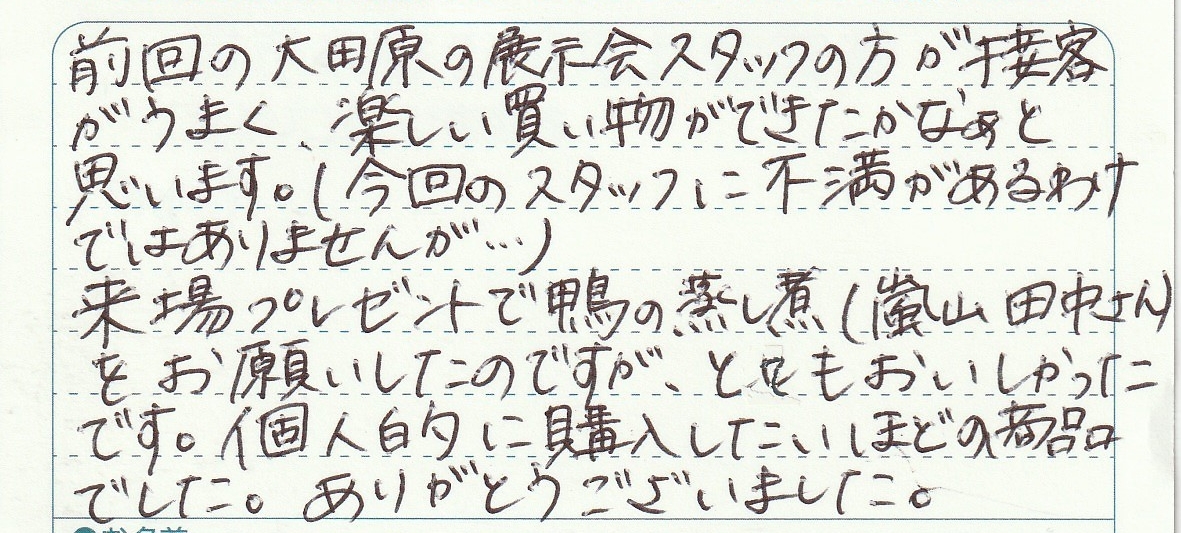 前回の大田原の展示会スタッフの方が接客
がうまく、楽しい買い物ができたかなぁと
思います。(今回のスタッフに不満があるわけ
ではありませんが…)
来場プレゼントで鴨の蒸し煮(嵐山 田中さん)
をお願いしたのですが、とてもおいしかった
です。個人的に購入したいほどの商品
でした。ありがとうございました。